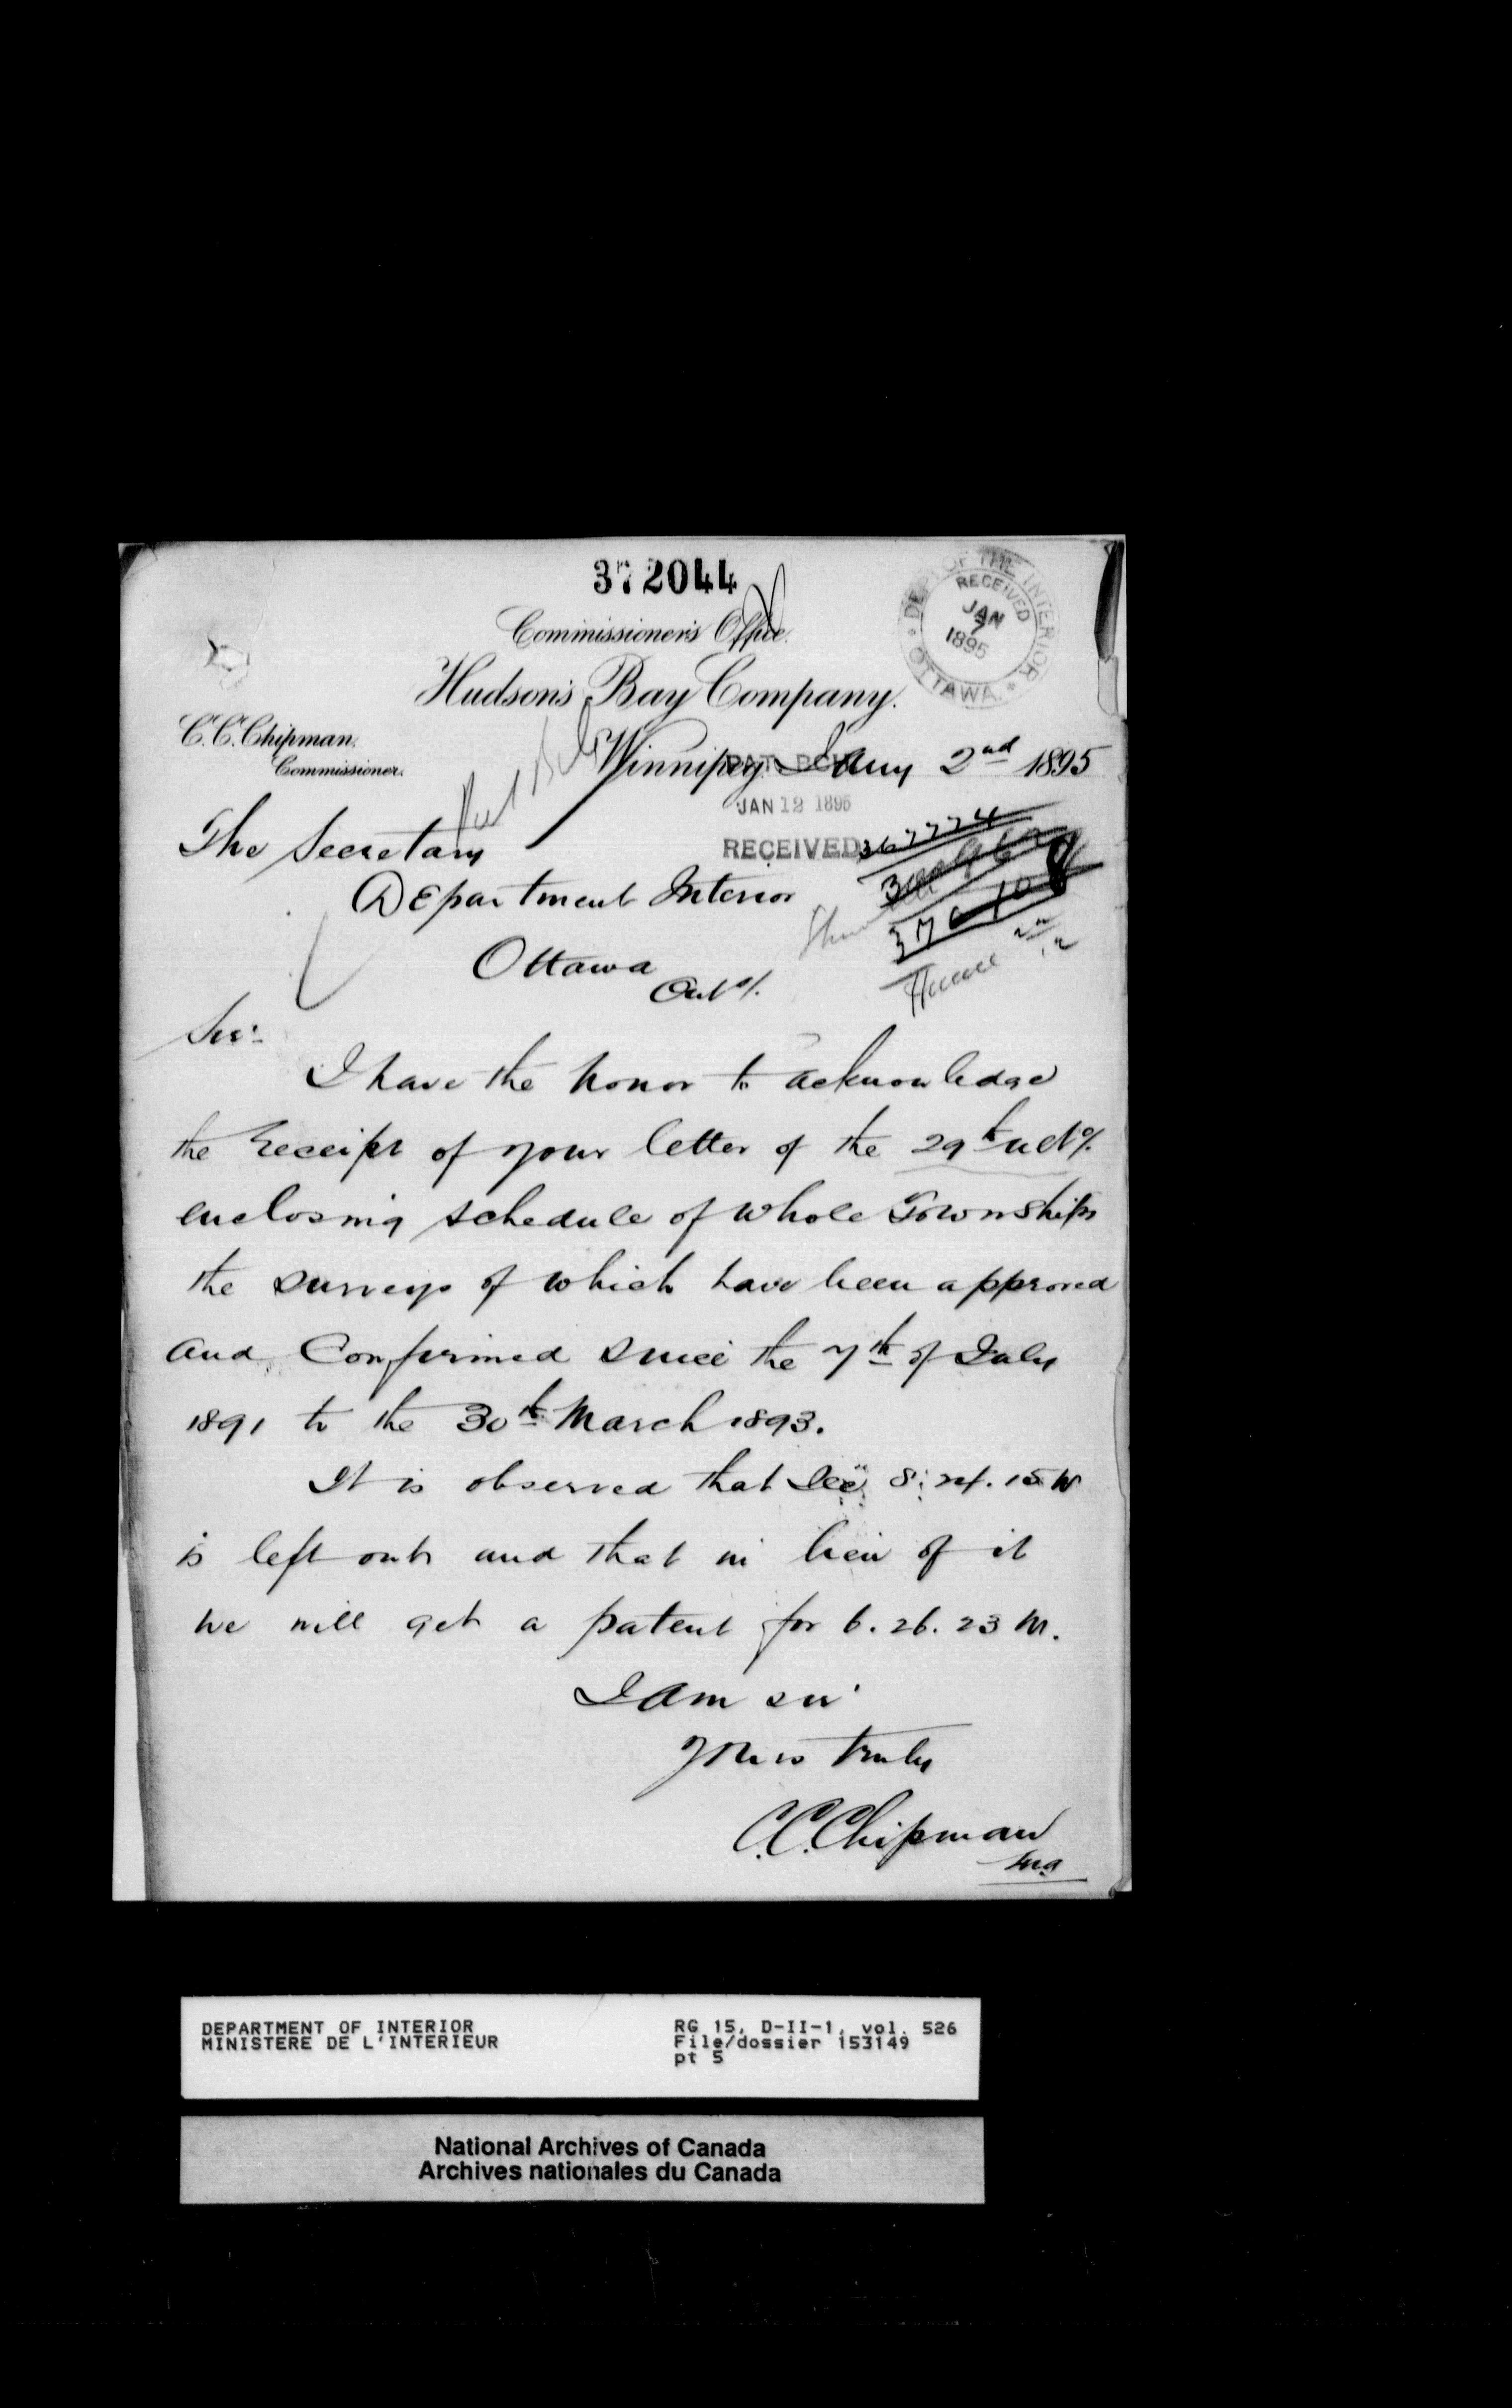 372044
DEPT OF THE INTERIOR
RECEIVED
JAN
7
1895
OTTAWA
Commissioner's Office.
Hudson's Bay Company.
C.C. Chipman,
Commissioner.
Winnipeg Jany 2nd 1895
JAN 12 1895
RECEIVED
367774
The Secretary
Department Interior
Ottawa
Ont%.
Sir:
I have the honor to acknowledge
the receipt of your letter of the 29th ult%.
enclosing schedule of whole Townships
the surveys of which have been approved
and Confirmed since the 7th of July
1891 to the 30th March 1893.
It is observed that Sec 8: 24. 15 W
is left out and that in lieu of it
we will get a patent for 6. 26. 23 W.
I am sir
Yours truly
C.C. Chipman
DEPARTMENT OF INTERIOR
MINISTERE DE L'INTERIEUR
RG 15, D-II-1, vol. 526
File/dossier 153149
pt 5
National Archives of Canada
Archives nationales du Canada